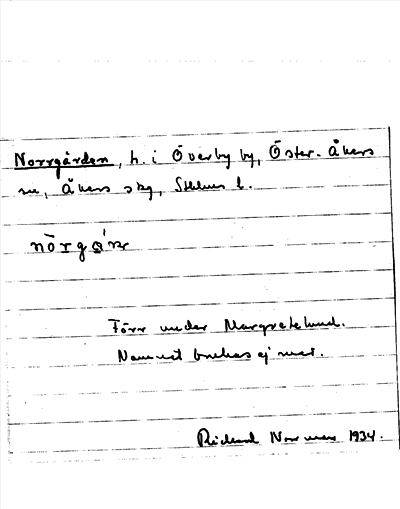 Norrgården, h. i Överby by, Öster-Åkers
sn, Åkers skg, Sthlms l.
Förr under Margretelund.
Namnet brukas ej mer.
Rickard Norrman 1934.